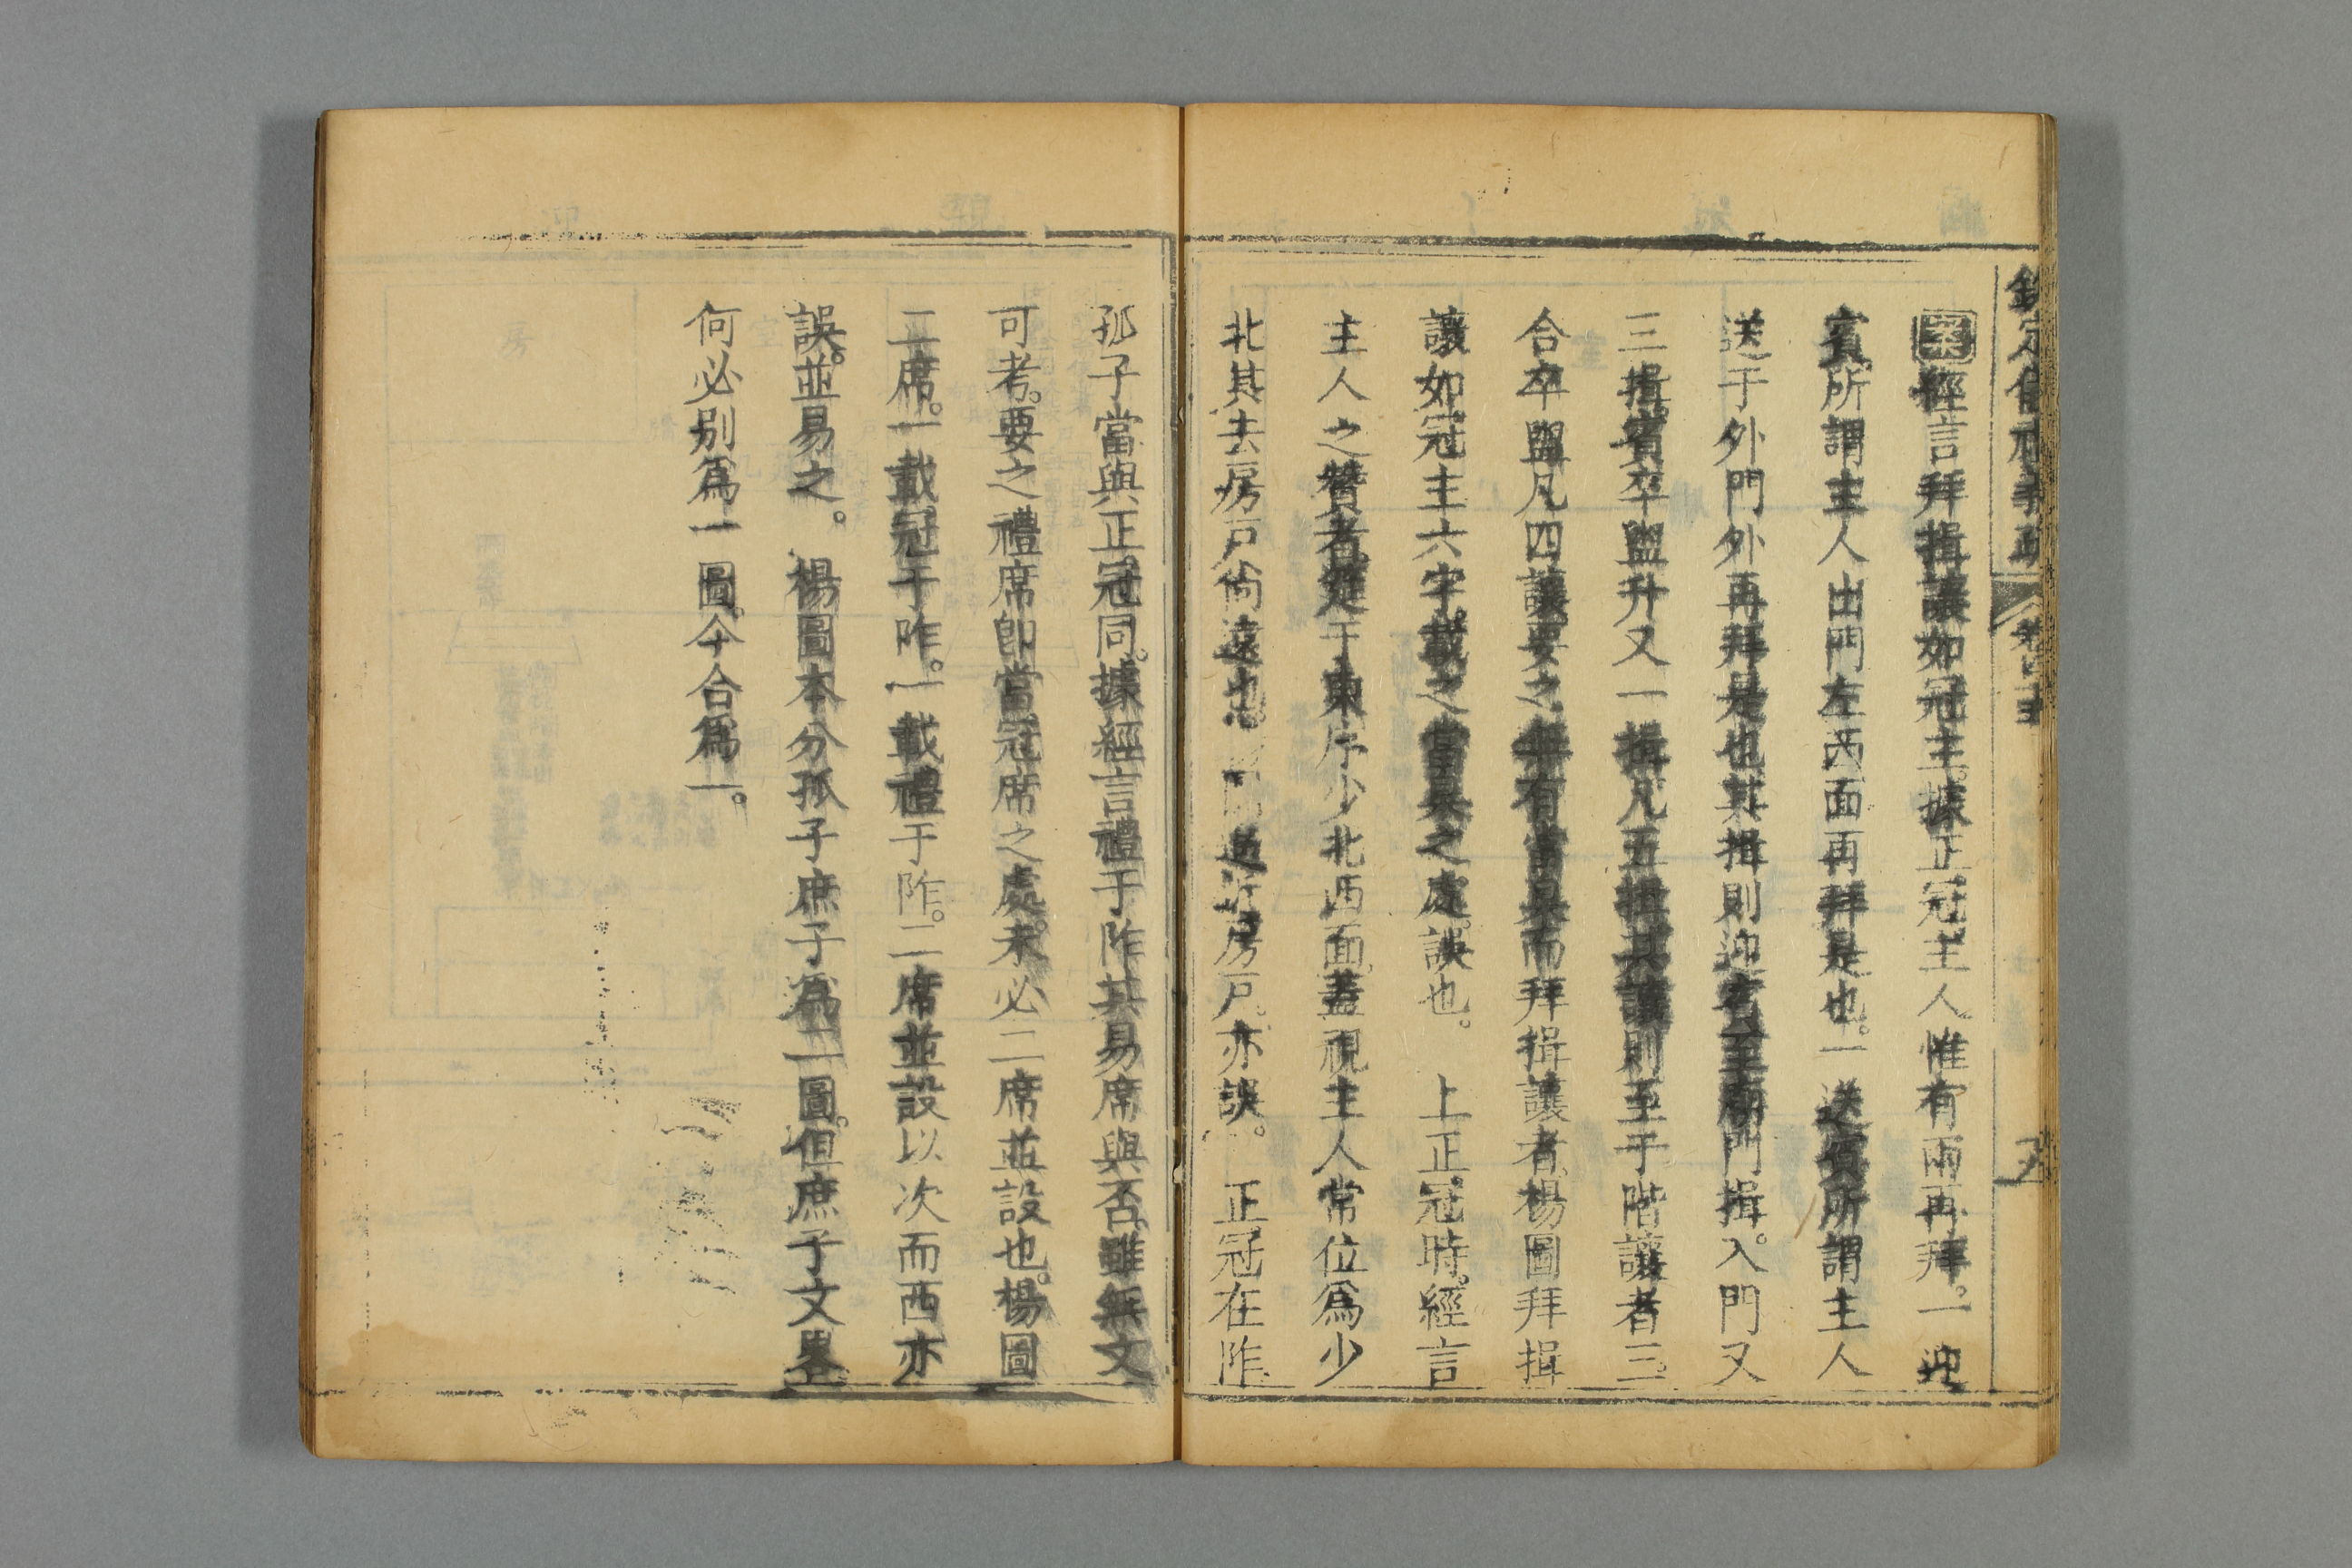 欽定儀禮義疏 卷四十五
案經言拜揖讓如冠主據正冠主人惟有兩再拜。一迎
賓所謂主人出門左西面再拜是也。一送賓所謂主人
送于外門外再拜是也其揖則迎賓至廟門揖。入門又
三揖賓卒盥升又一揖凡五揖其讓則至于階讓者三
合卒盥凡四讓要之無有當是而拜揖讓者楊圖拜揖
讓如冠主六字載之當是之處。誤也。 上正冠時。經言
主人之贊者筵于東序少北西面蓋視主人常位爲少
北其去房戶尙遠也 過近房戶。亦誤。 正冠在阼
孤子當與正冠同。據經言禮于阼其易席與否雖無文
可考。要之禮席卽當冠席之處。未必二席並設也。楊圖
二席。一載冠于阼。一載禮于阼。二席並設以次而西亦
誤。並易之。 楊圖本分孤子庶子爲二圖。但庶子文畧
何必别爲一圖。今合爲一。